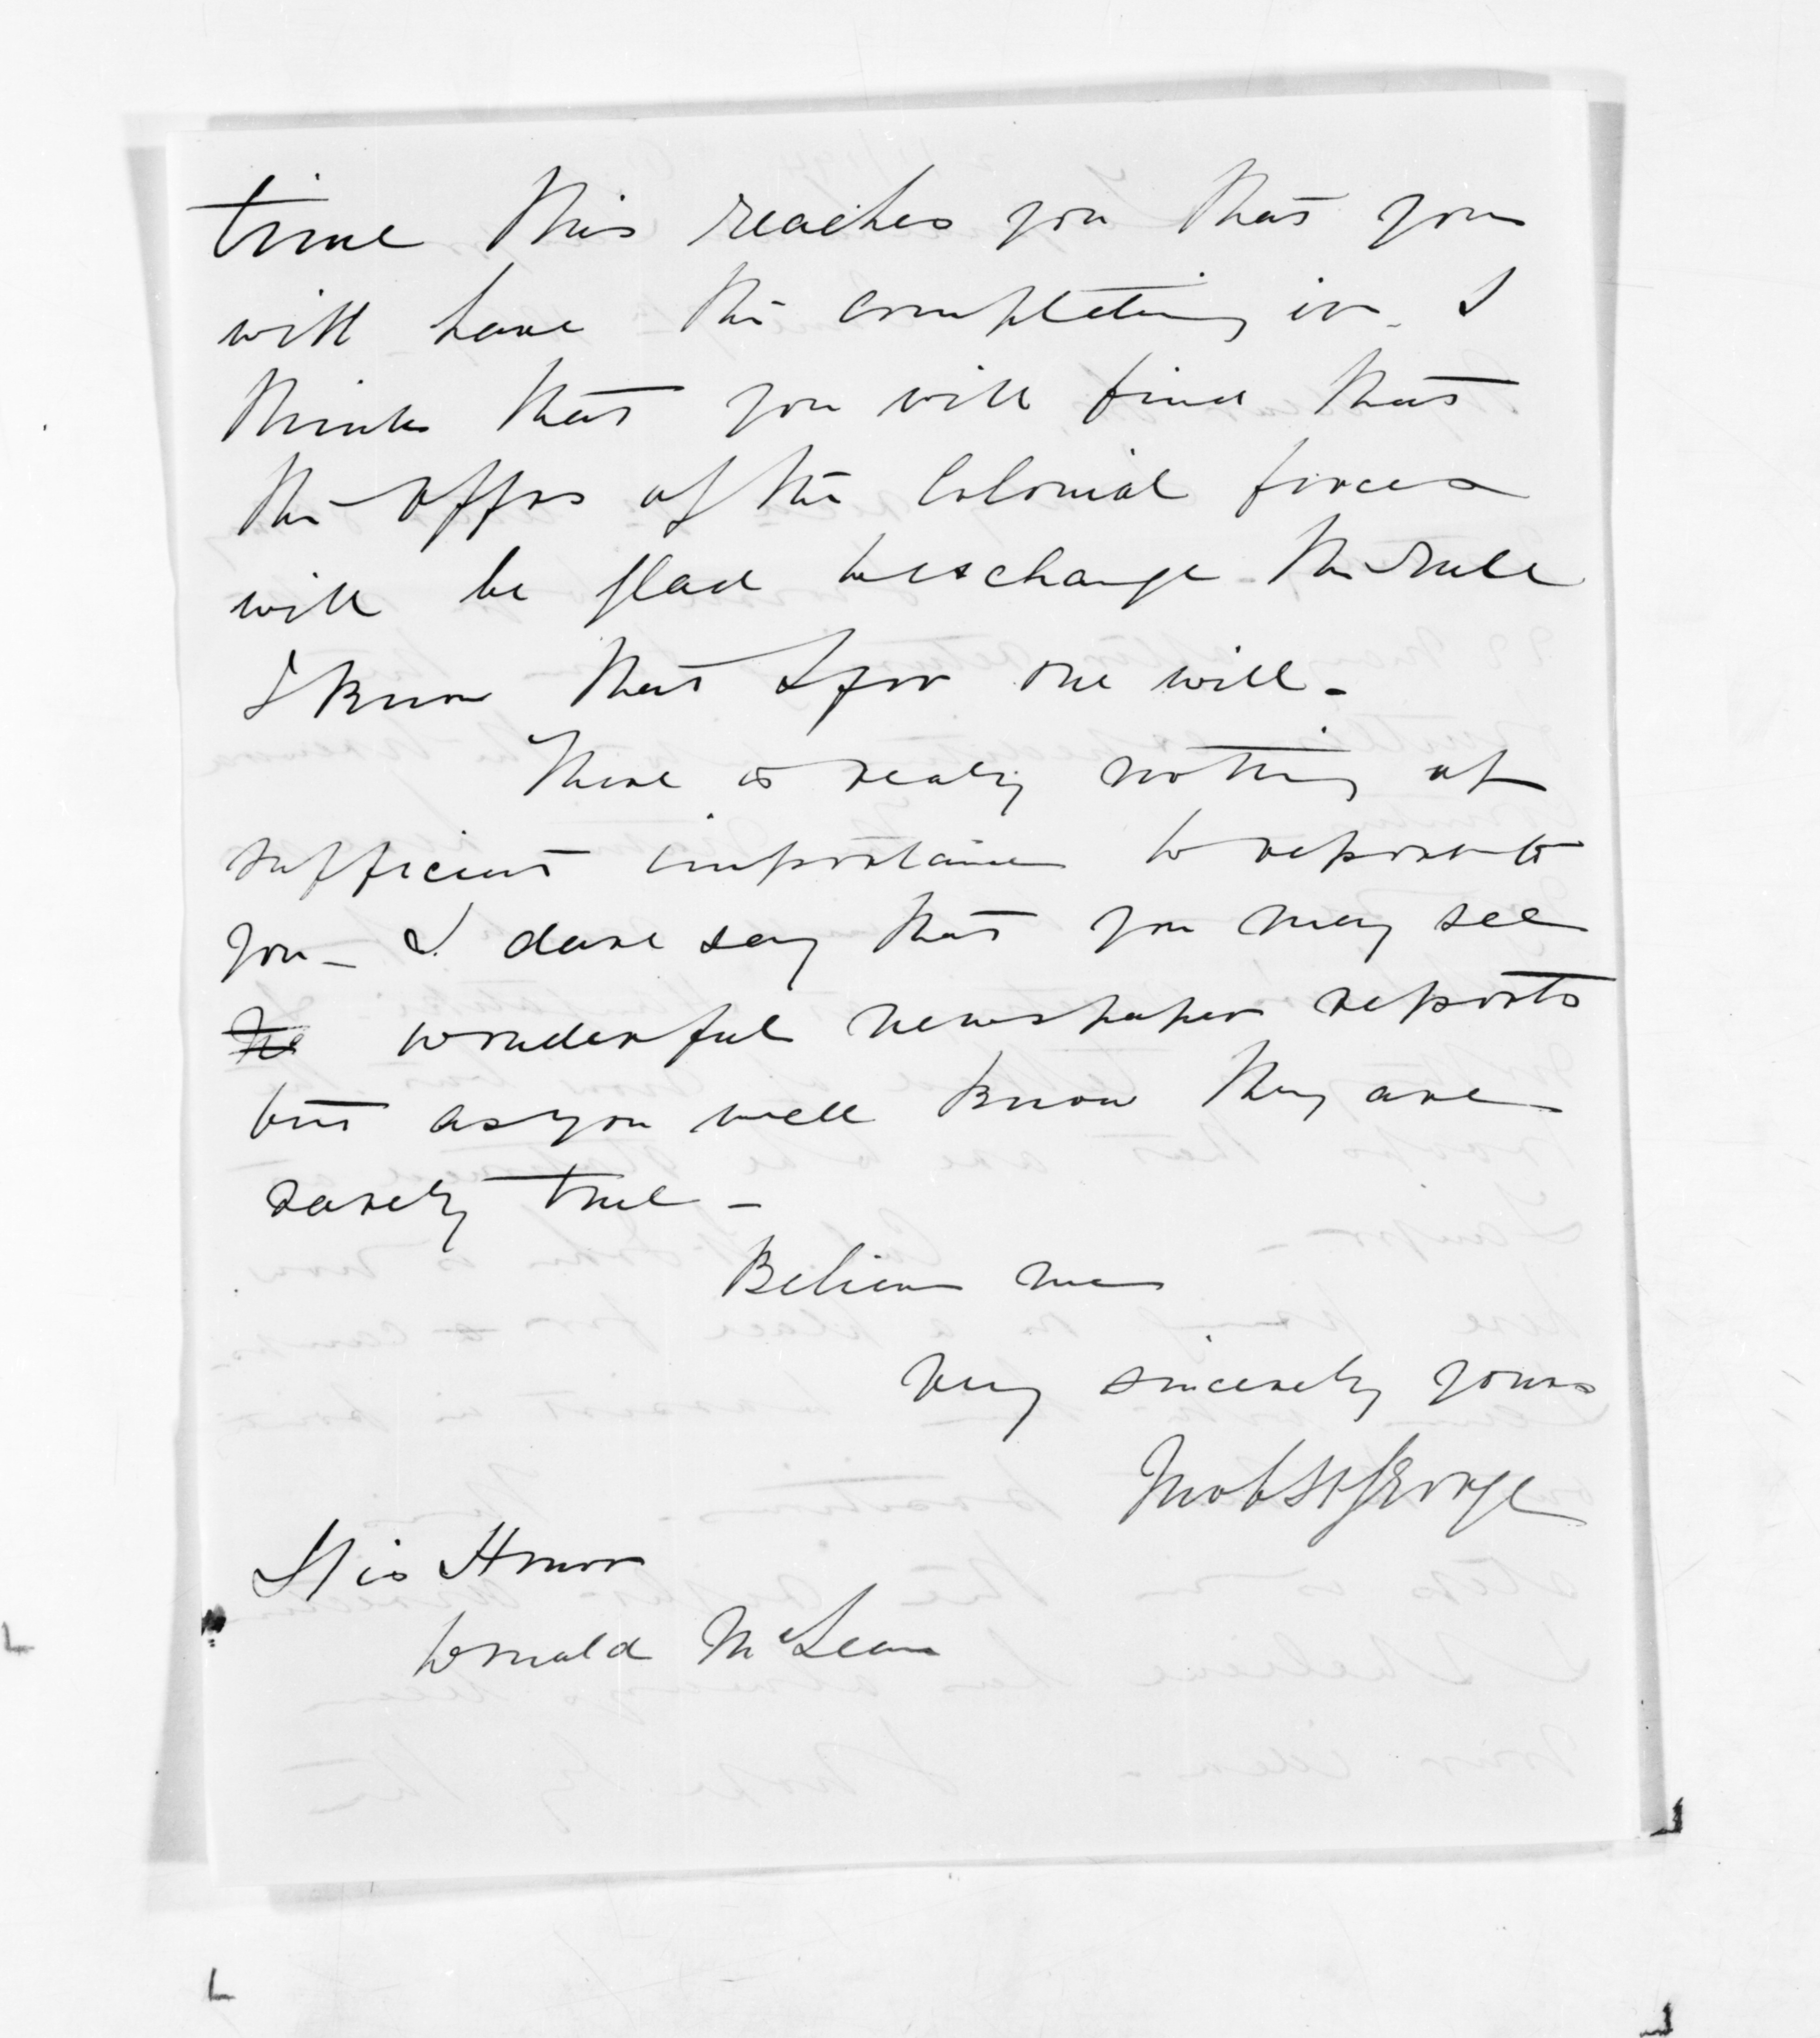 time this reaches you that you
will have the completing in. I
think that you will find that
the offrs of the Colonial forces
will be glad to exchange the rule
I know that I for one will.
There is really nothing of
sufficient importance to report to
you - I dare say that you may see
wonderful newspaper reports
but as you well know they are
rarely true -
Believe me
very sincerely yours
St George
His Honor
Donald McLean